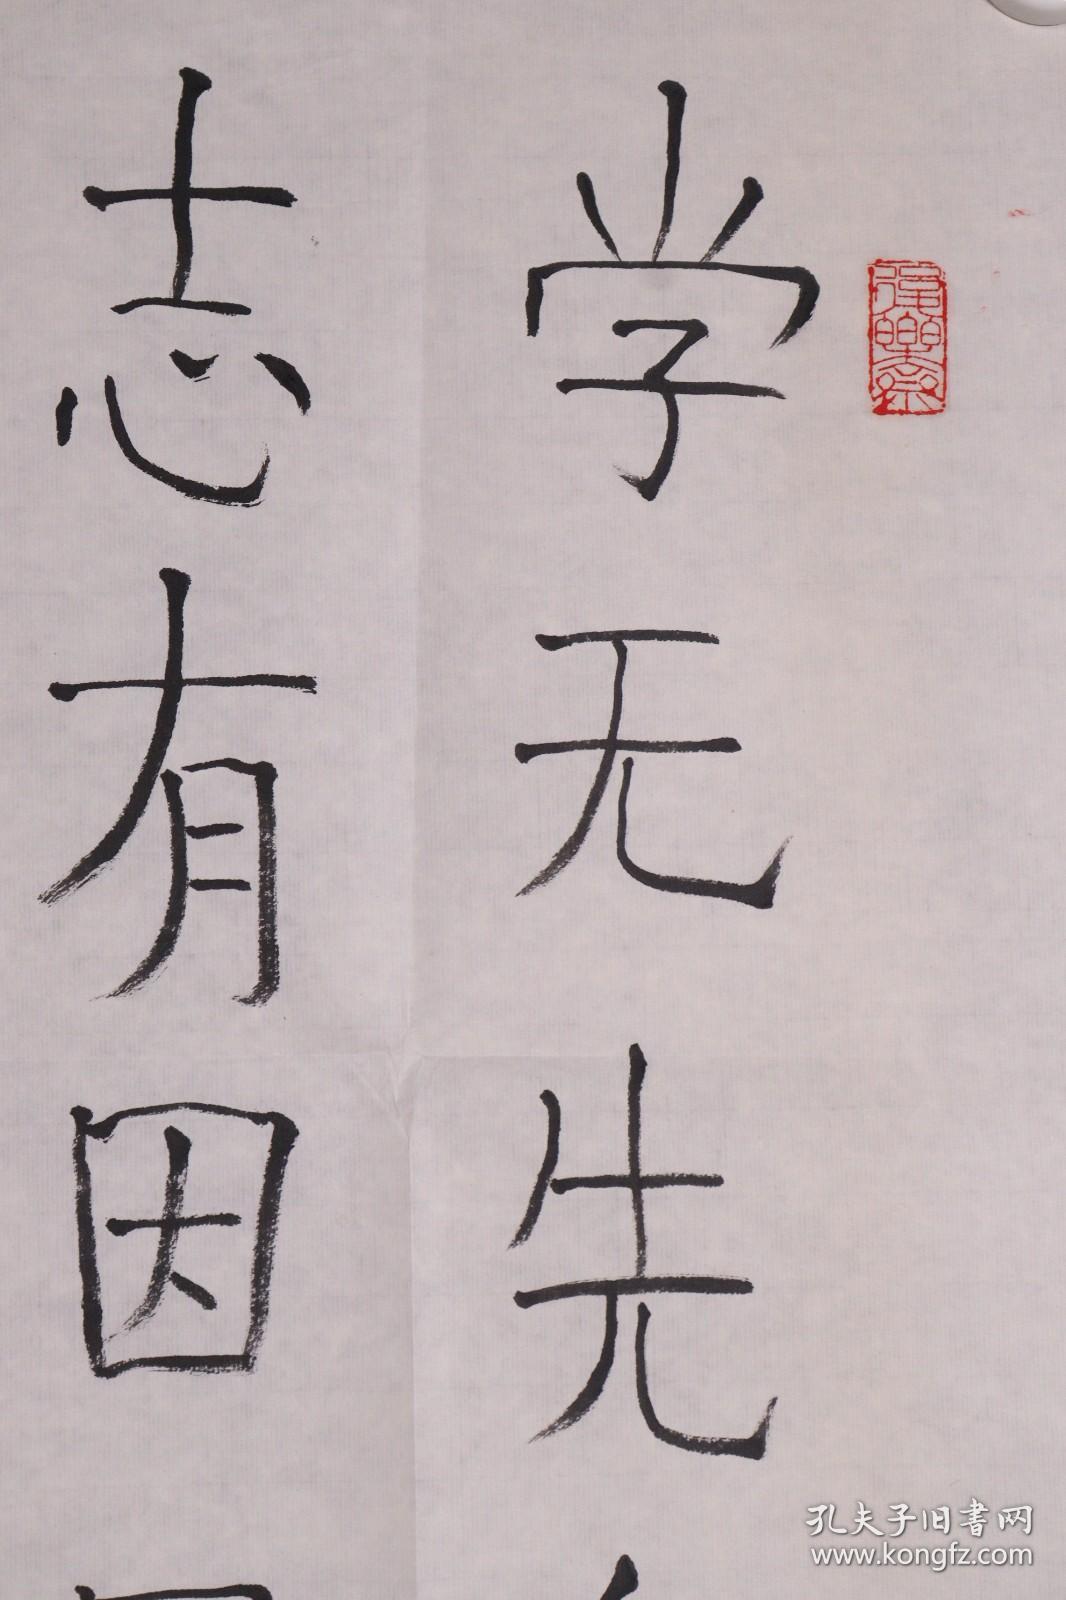 学无先
志有因
孔夫子旧书网
www.kongfz.com